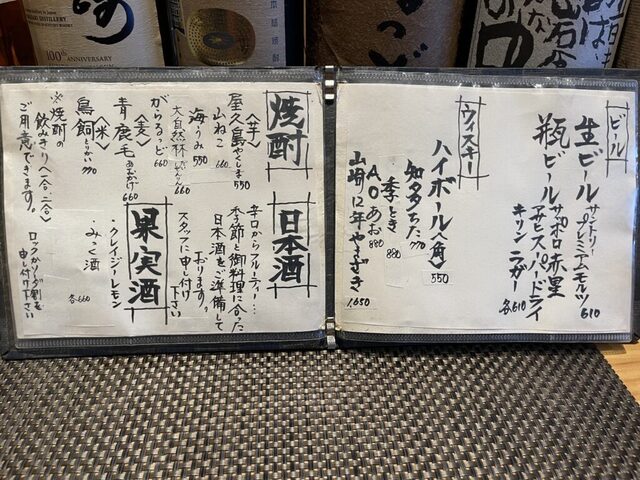 ビール
生ビール サントリー プレミアムモルツ 610
瓶ビール サッポロ赤星
アサヒスーパードライ
キリン ラガー 各610
ウィスキー
ハイボール〈角〉 550
知多 ちた 770
季 とき 880
AO あお 880
山崎12年 やまざき 1,650
焼酎
〈芋〉
屋久島 やくしま 550
山ねこ 660
海 うみ 550
大自然林 660
〈麦〉
がらるっど 660
青鹿毛 あおかげ 660
〈米〉
鳥飼 とりかい 770
※焼酎の
飲みきり(一合、二合)
ご用意できます。
日本酒
辛口からフルーティー…
季節と御料理に合った
日本酒をご準備して
おります。
スタッフに申し付け
下さい
果実酒
・クレイジーレモン
・みっこ酒
各660
ロックかソーダ割を
申し付け下さい
100th
ANNIVERSARY